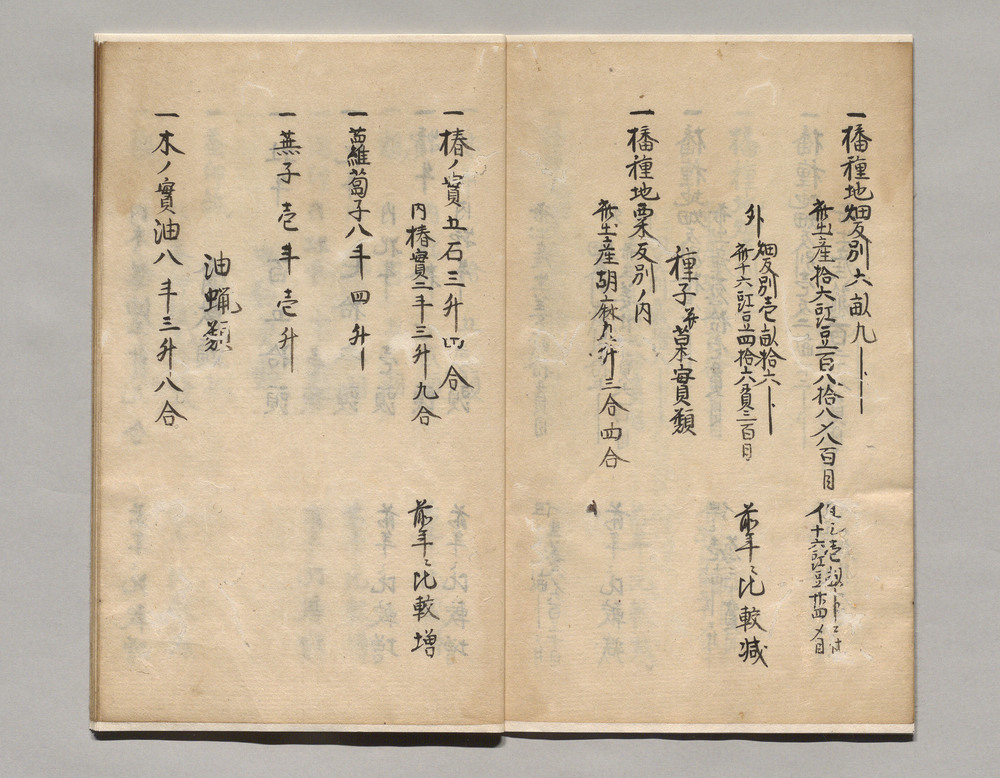 一播種地畑反別六畝九
産拾六豇豆百八拾八〆八百目
十六豇豆
外
畑反別壱畝拾六
十六豇豆四拾六貫三百目
前年ニ比較減
種子并菓實類
一播種地粟反別ノ内
産胡麻八升三合四合
一椿ノ實五石三升四合
内椿實二斗三升九合
前年ニ比較増
一蘿蔔子八斗四升
一蕪子壱斗壱升
油蝋類
一木ノ實油八斗三升八合